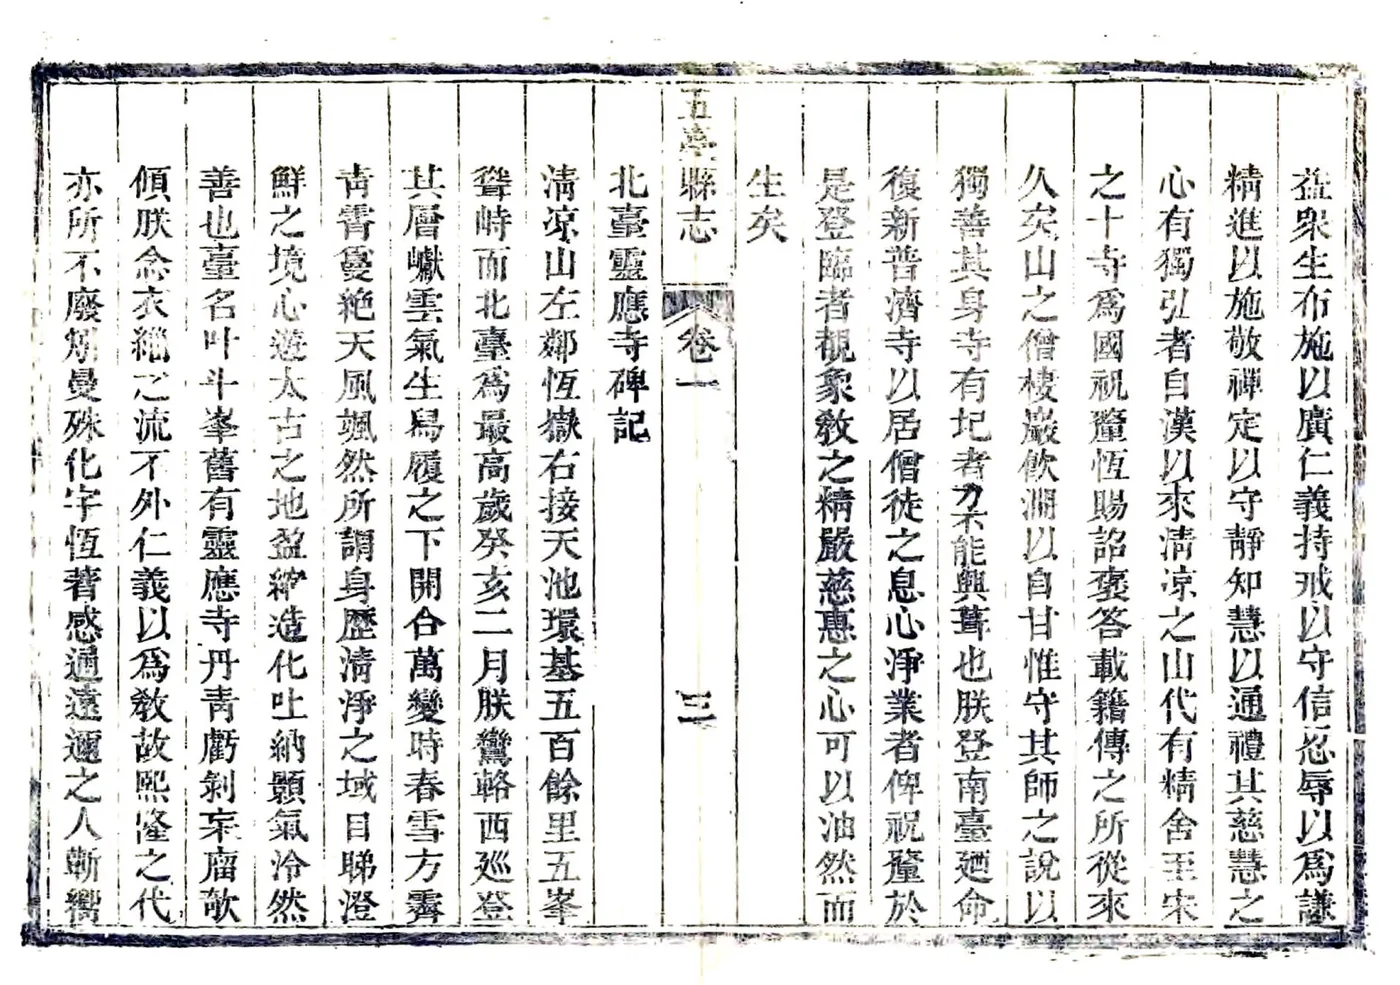 益衆生布施以廣仁義持戒以守信忍辱以爲謙
精進以施敬禪定以守靜知慧以通禮其慈慧之
心有獨弘者自漢以來淸凉之山代有精舍至宋
之十寺爲國祝釐恆賜詔褒答載籍傳之所從來
久矣山之僧棲巖飲澗以自甘惟守其師之說以
獨善其身寺有圮者力不能興葺也朕登南臺廻命
復新普濟寺以居僧徒之息心淨業者俾祝釐於
是登臨者覩象敎之精嚴慈惠之心可以油然而
生矣
五臺縣志
卷一
三
北臺靈應寺碑記
淸凉山左鄰恆嶽右接天池環基五百餘里五峯
聳峙而北臺爲最高歲癸亥二月朕鸞輅西廵登
其層巘雲氣生舃履之下開合萬變時春雪方霽
靑霄敻絶天風颯然所謂身歷淸淨之域目睇澄
鮮之境心遊太古之地盈縮造化吐納顥氣泠然
善也臺名叶斗峯舊有靈應寺丹靑虧剝宋廇欹
傾朕念衣緇之流不外仁義以爲敎故熙隆之代
亦所不廢矧曼殊化宇恆著感通遠邇之人蘄嚮